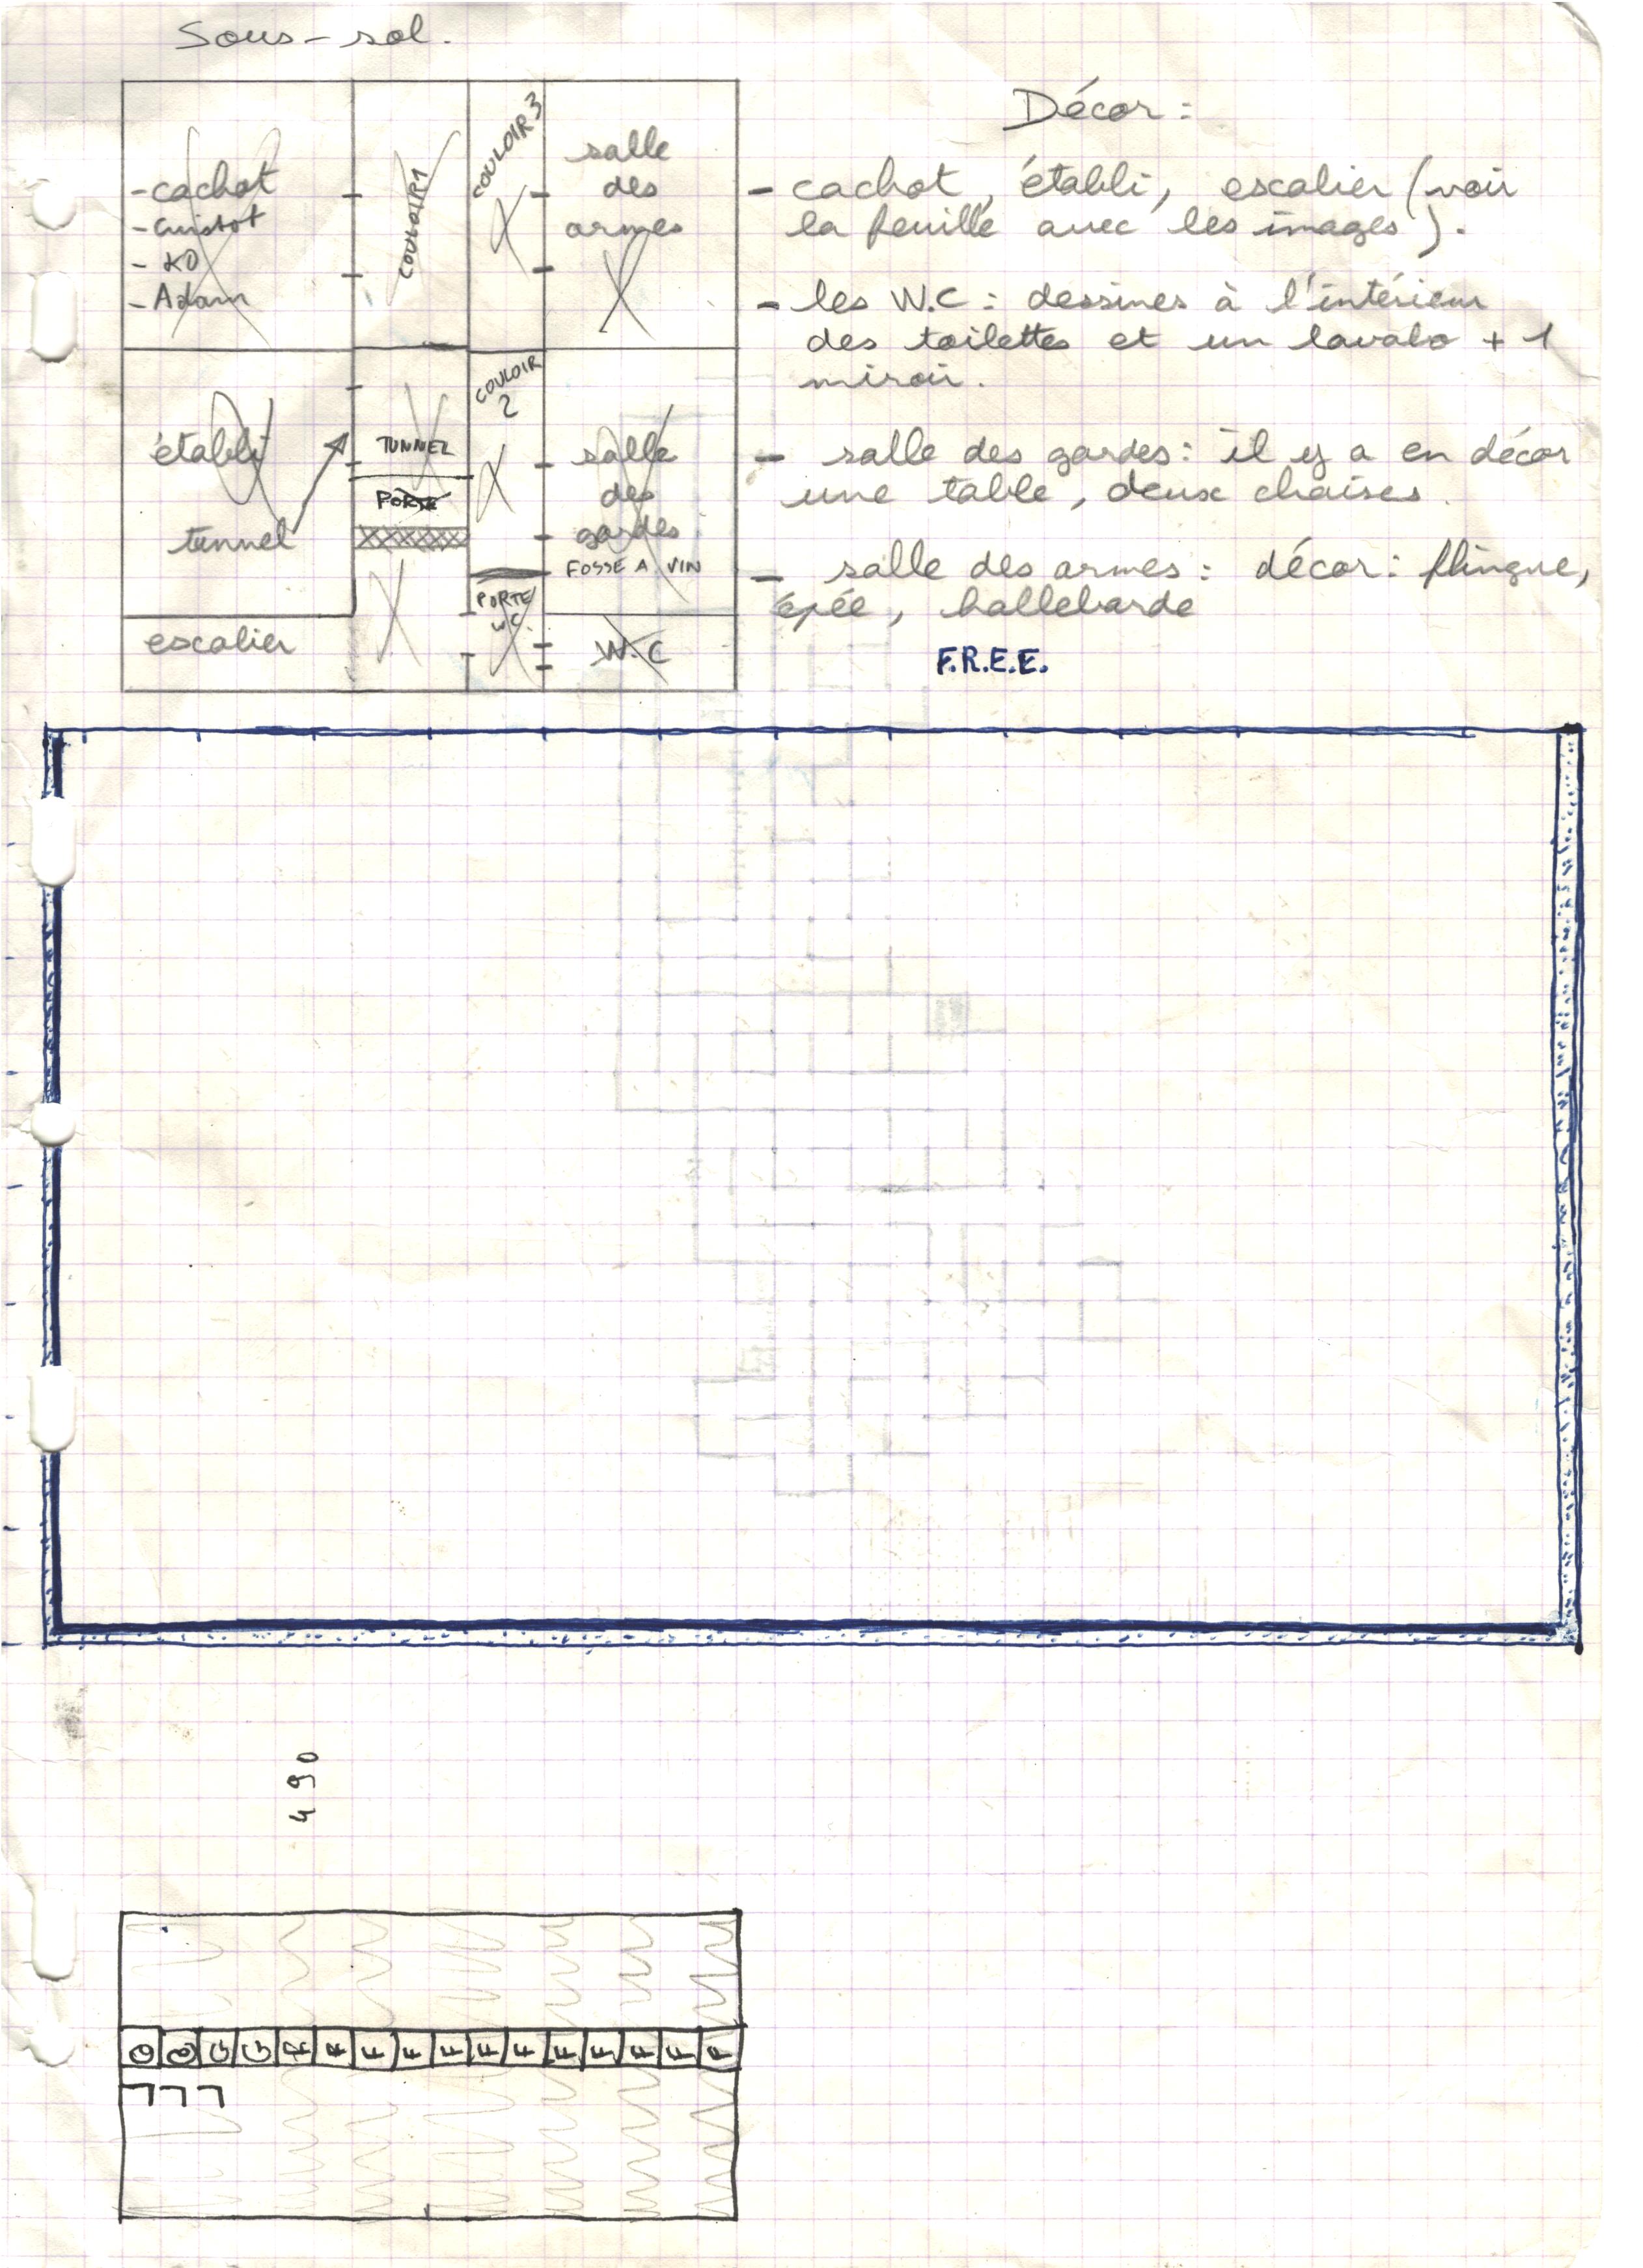 Sous-sol.
-cachot
-cuistot
-KO
-Adam
COULOIR 1
COULOIR 3
salle
des
armes
établi
tunnel
TUNNEL
PORTE
COULOIR
2
salle
des
gardes
FOSSE A VIN
PORTE
W.C.
escalier
W.C
Décor:
- cachot, établi, escalier (voir
la feuille avec les images).
- les W.C: dessines à l'intérieur
des toilettes et un lavabo + 1
miroir.
- salle des gardes: il y a en décor
une table, deux chaises.
- salle des armes: décor: flingue,
épée, hallebarde
F.R.E.E.
490